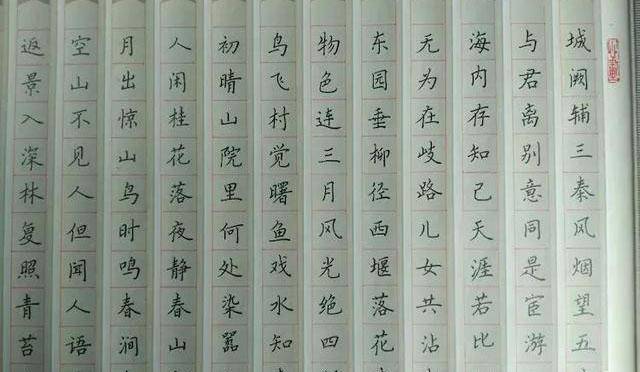 城阙辅三秦风烟望五
与君离别意同是宦游
海内存知己天涯若比
无为在歧路儿女共沾
东园垂柳径西堰落花
物色连三月风光绝四
鸟飞村觉曙鱼戏水知
初晴山院里何处染嚣
人闲桂花落夜静春山
月出惊山鸟时鸣春涧
空山不见人但闻人语
返景入深林复照青苔